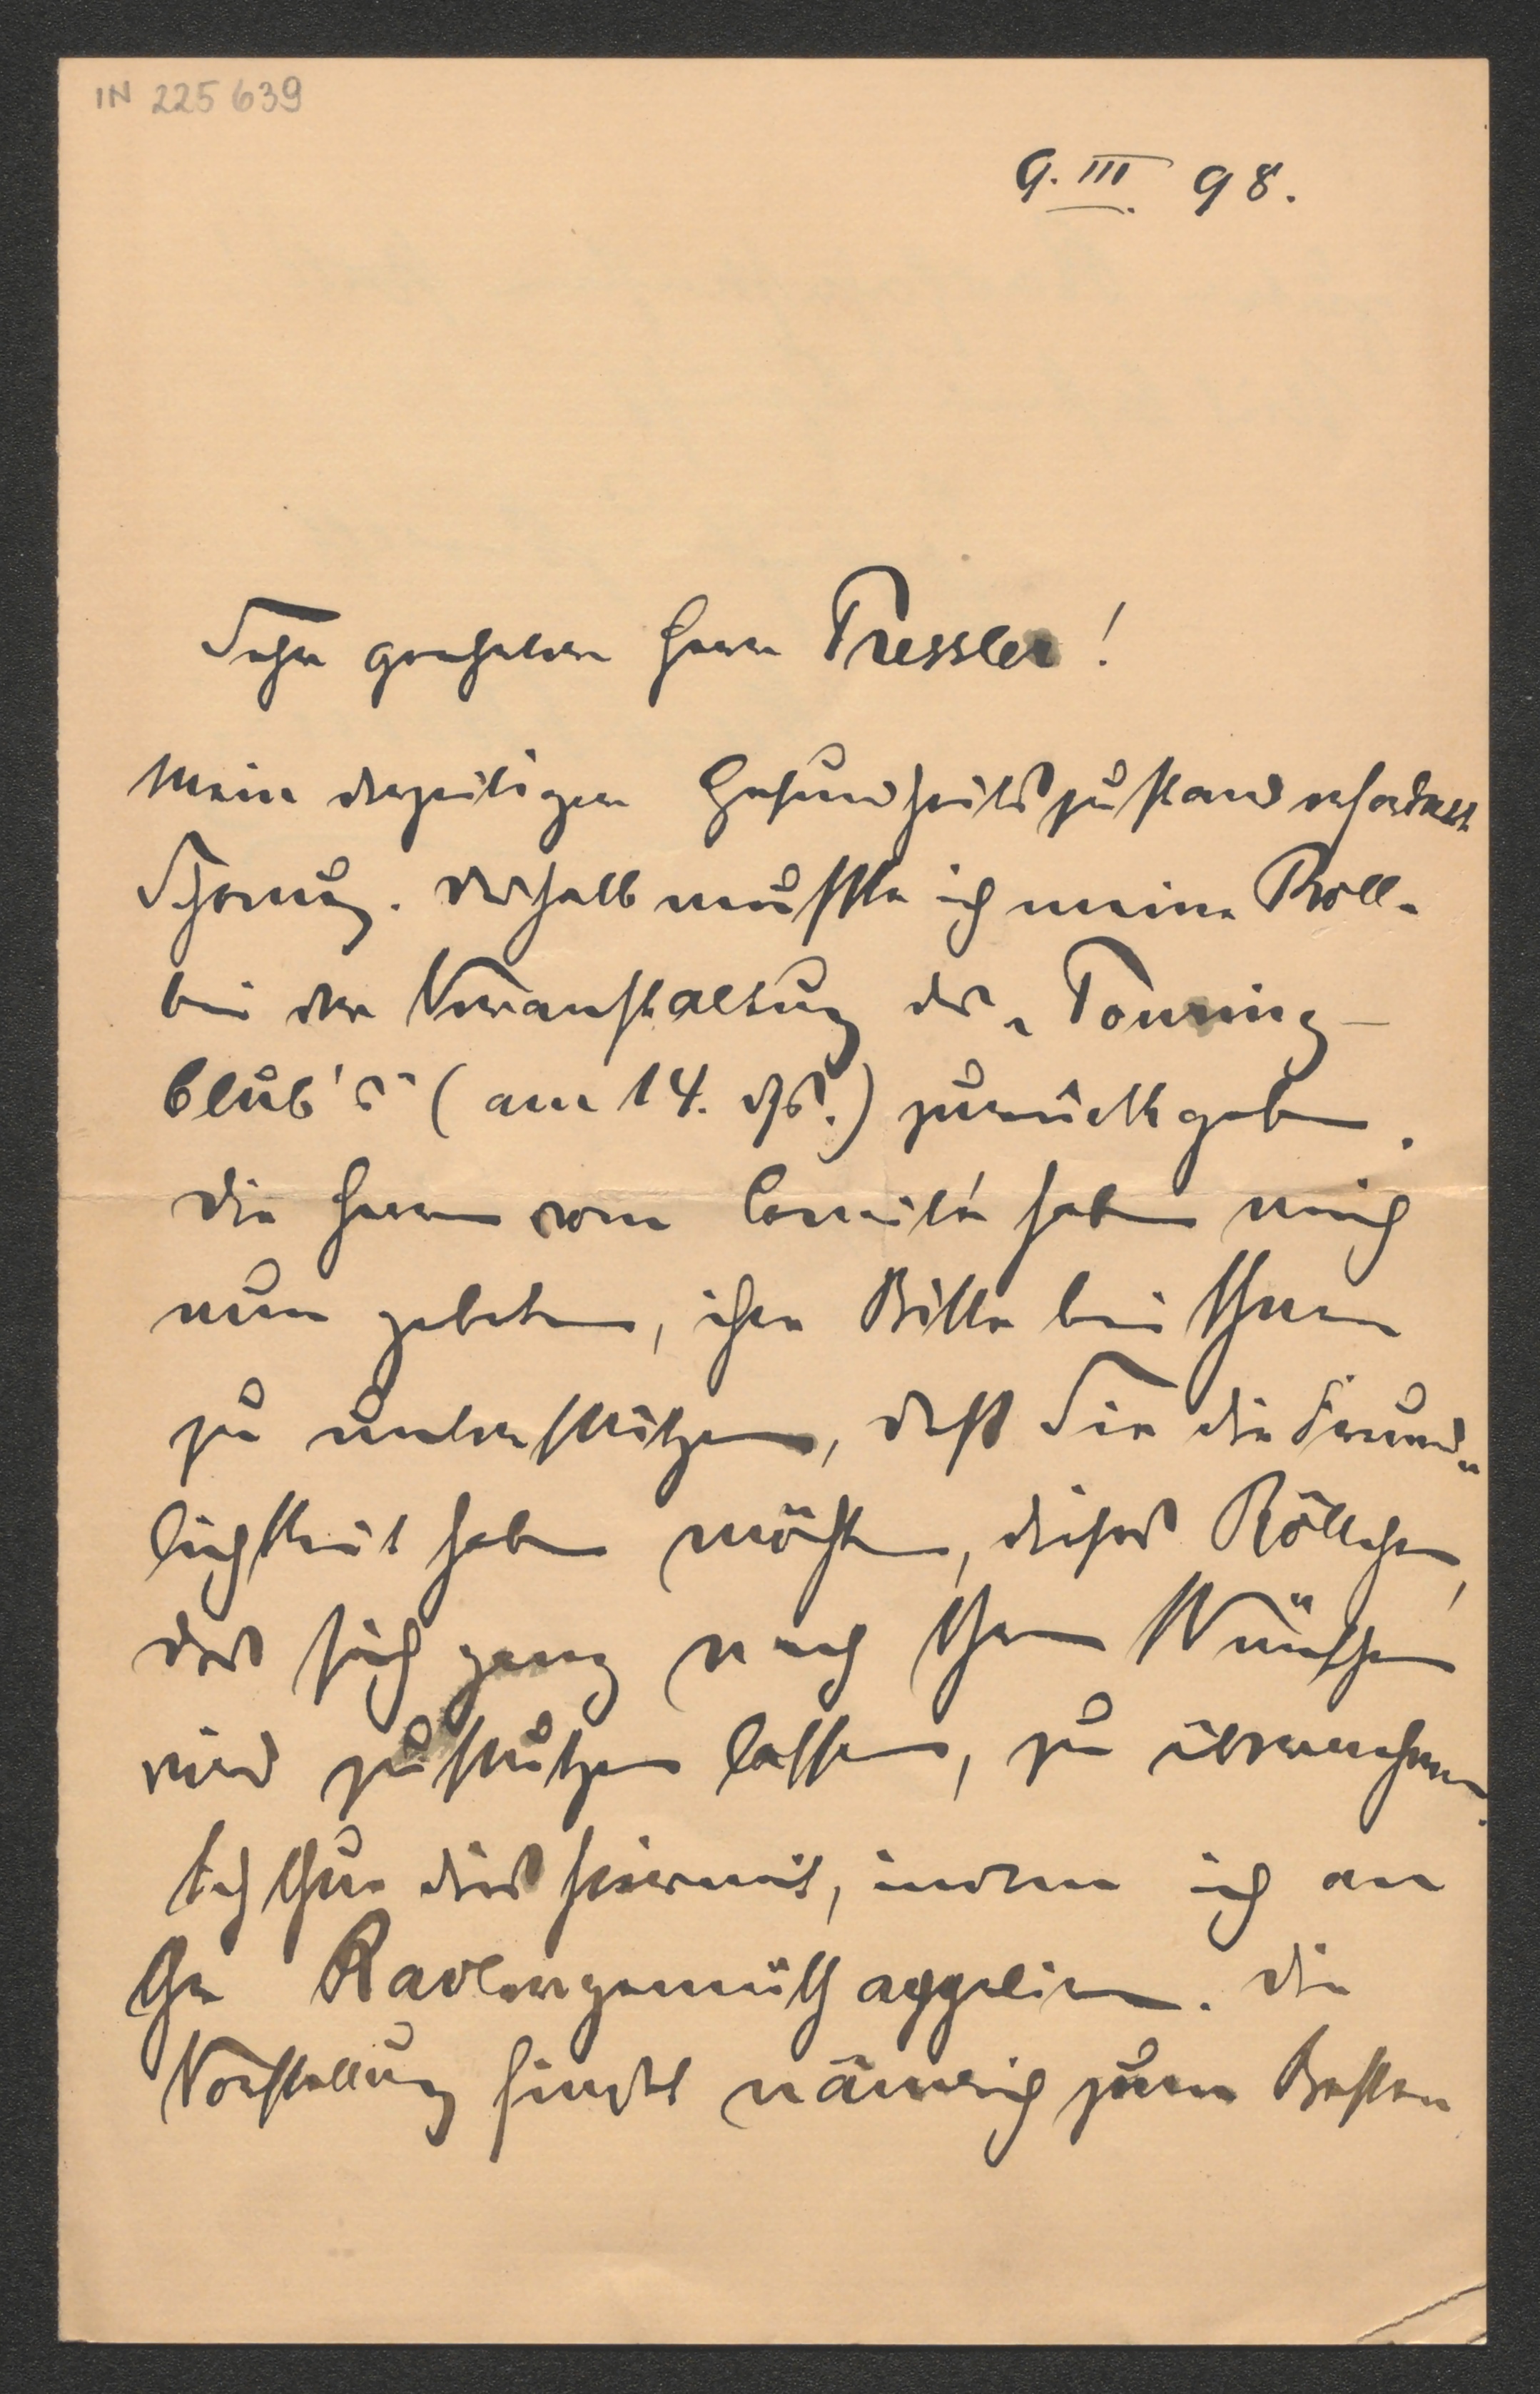 IN 225639
9. III. 98.
Sehr geehrter Herr Tressler!
Mein derzeitiger Gesundheitszustand erfordert
Schonung. Deshalb mußte ich meine Rolle
bei der Veranstaltung des „Touring-
Club's“ (am 14. ds.) zurückgeben.
Die Herren vom Comité haben mich
nun gebeten, ihre Bitte bei Ihnen
zu unterstützen, daß Sie die Freund-
lichkeit haben möchten, dieses Röllchen,
das sich ganz nach Ihren Wünschen
wird zustutzen lassen, zu übernehmen.
Ich thue dies hiermit, indem ich an
Ihr Radlergemüth appeliere. Die
Vorstellung findet nämlich zum Besten